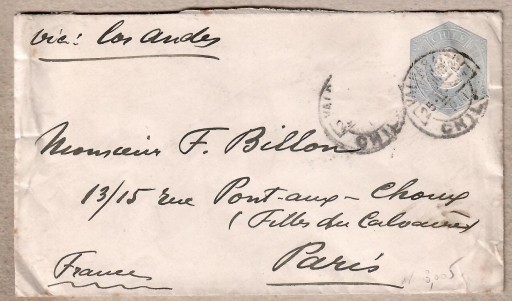 via: los Andes
CHILE
VALPARAISO
CHILE
Monsieur F. Billon
13/15 rue Pont-aux-Choux
(Filles du Calvaire)
Paris
France